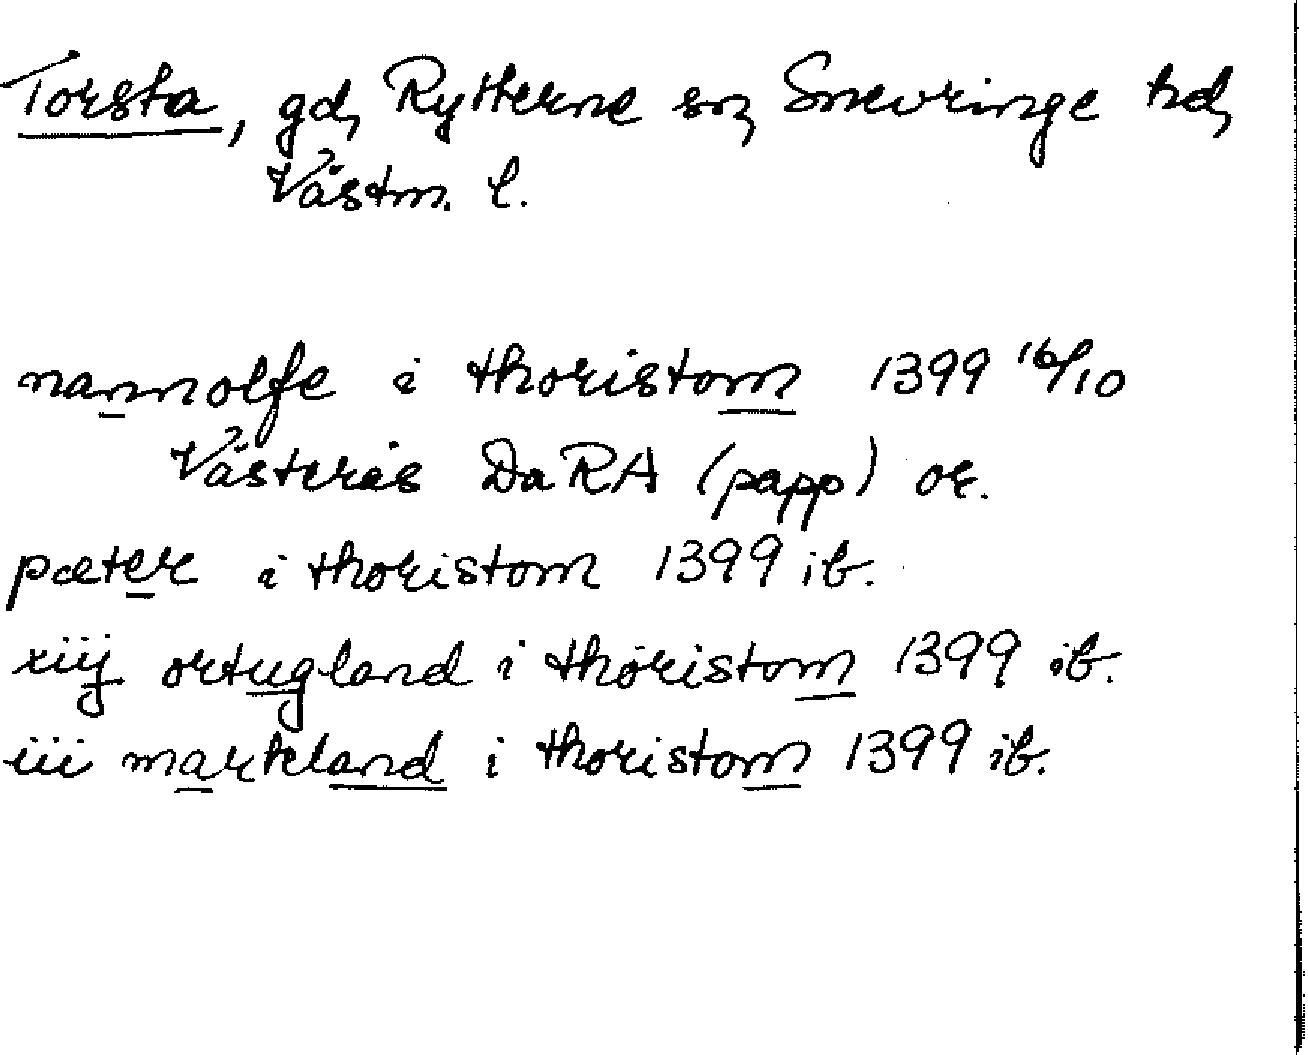 Torsta, gd, Rytterne sn, Snevringe hd,
Västm. l.
nannolfe i thoristom 1399 16/10
Västerås DaRA (papp) or.
pæter i thoristom 1399 ib.
xiij ortugland i thøristom 1399 ib.
iii markland i thoristom 1399 ib.